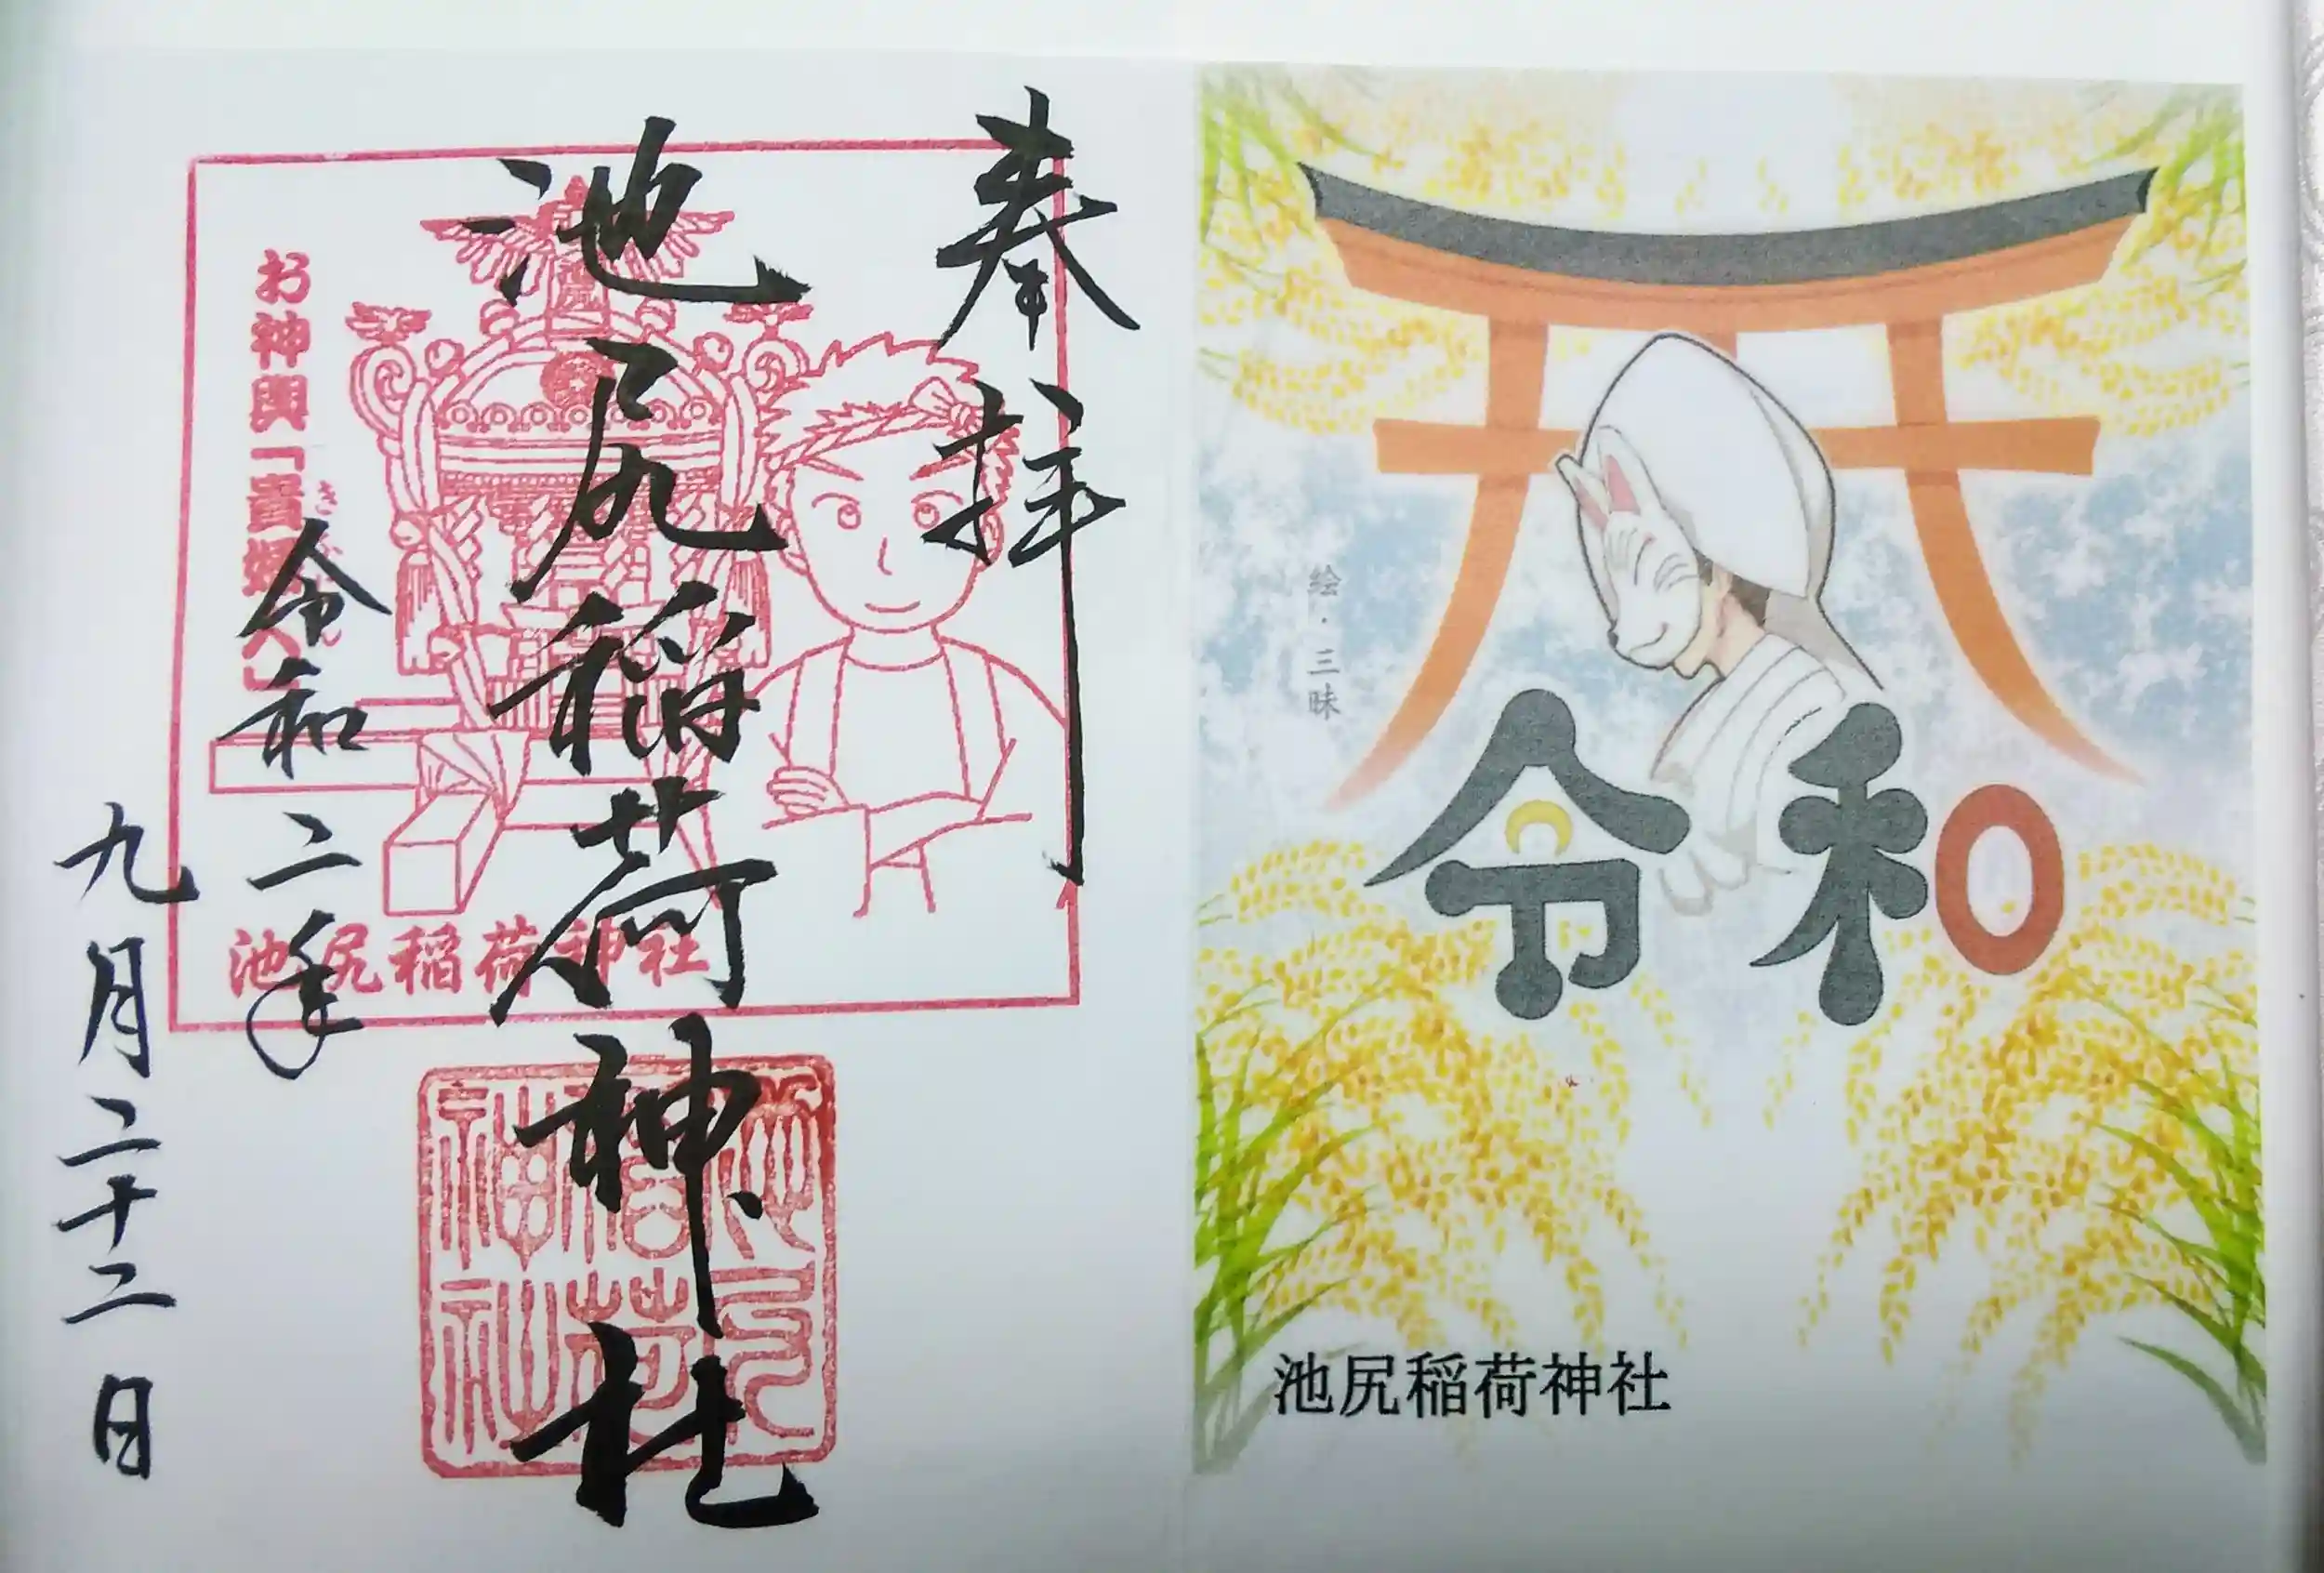 奉拝
池尻稲荷神社
令和二年
九月二十二日
お神輿「貴婦人」
き
じん
池尻稲荷神社
池尻稲荷神社
絵・三昧
令和
池尻稲荷神社